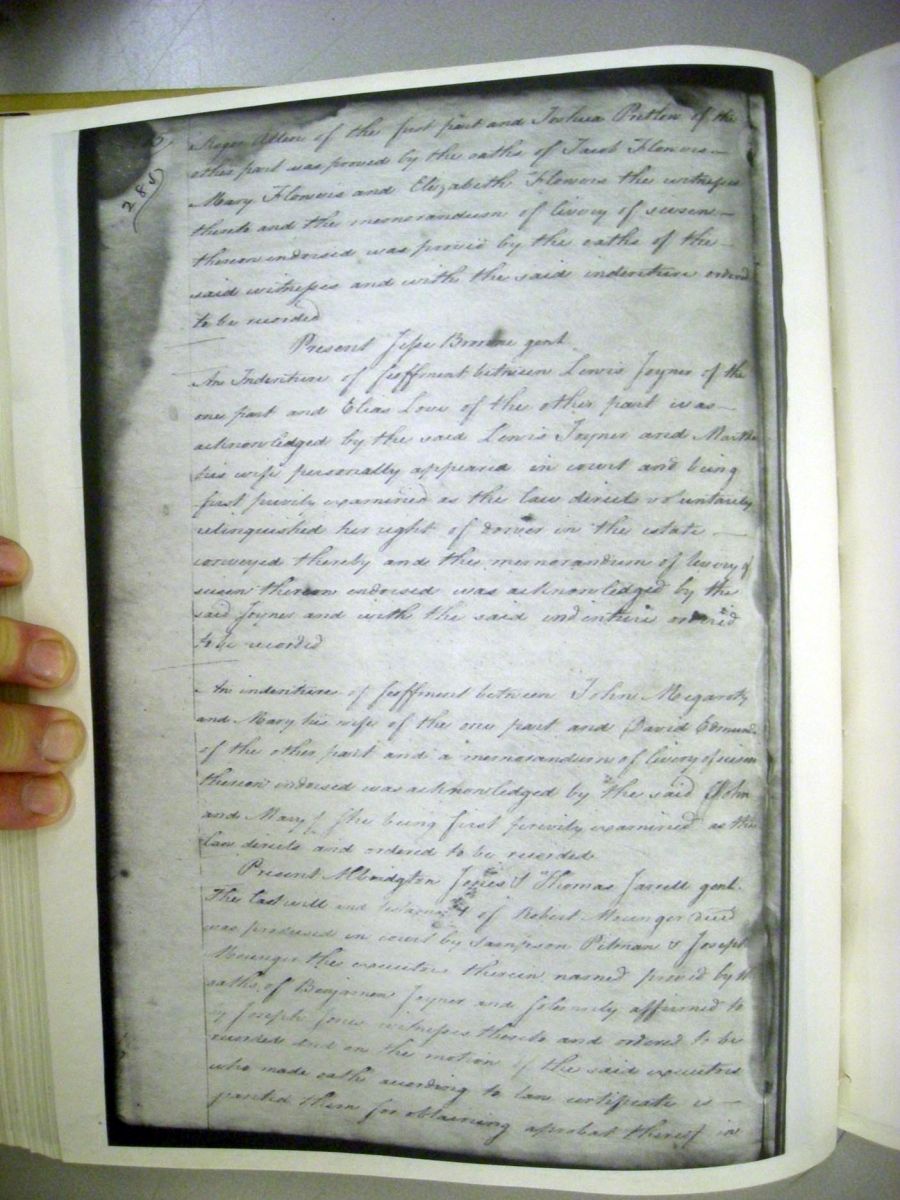 285
Roger Allen of the first part and Joshua Pretlow of the
other part was proved by the oaths of Jacob Flowers
Mary Flowers and Elizabeth Flowers the witnesses
thereto and the memorandum of livery of seisen
thereon endorsed was proved by the oaths of the
said witnesses and with the said indenture ordered
to be recorded
Present Jesse Browne gent.
An Indenture of feoffment between Lewis Joyner of the
one part and Elias Love of the other part was
acknowledged by the said Lewis Joyner and Martha
his wife personally appeared in court and being
first privily examined as the law directs voluntarily
relinquished her right of dower in the estate
conveyed thereby and the memorandum of livery of
seisen thereon endorsed was acknowledged by the
said Joyner and with the said indenture ordered
to be recorded
An indenture of feoffment between John Megarity
and Mary his wife of the one part and David Edmunds
of the other part and a memorandum of livery of seisen
thereon endorsed was acknowledged by the said John
and Mary she being first privily examined as the
law directs and ordered to be recorded
Present Albridgton Jones & Thomas Jarrell gent.
The last will and testament of Robert Mounger decd
was produced in court by Sampson Pitman & Joseph
Mounger the executors therein named proved by the
oaths of Benjamin Joyner and solemnly affirmed to
by Joseph Jones witnesses thereto and ordered to be
recorded and on the motion of the said executors
who made oath according to law certificate is
granted them for obtaining a probat thereof in